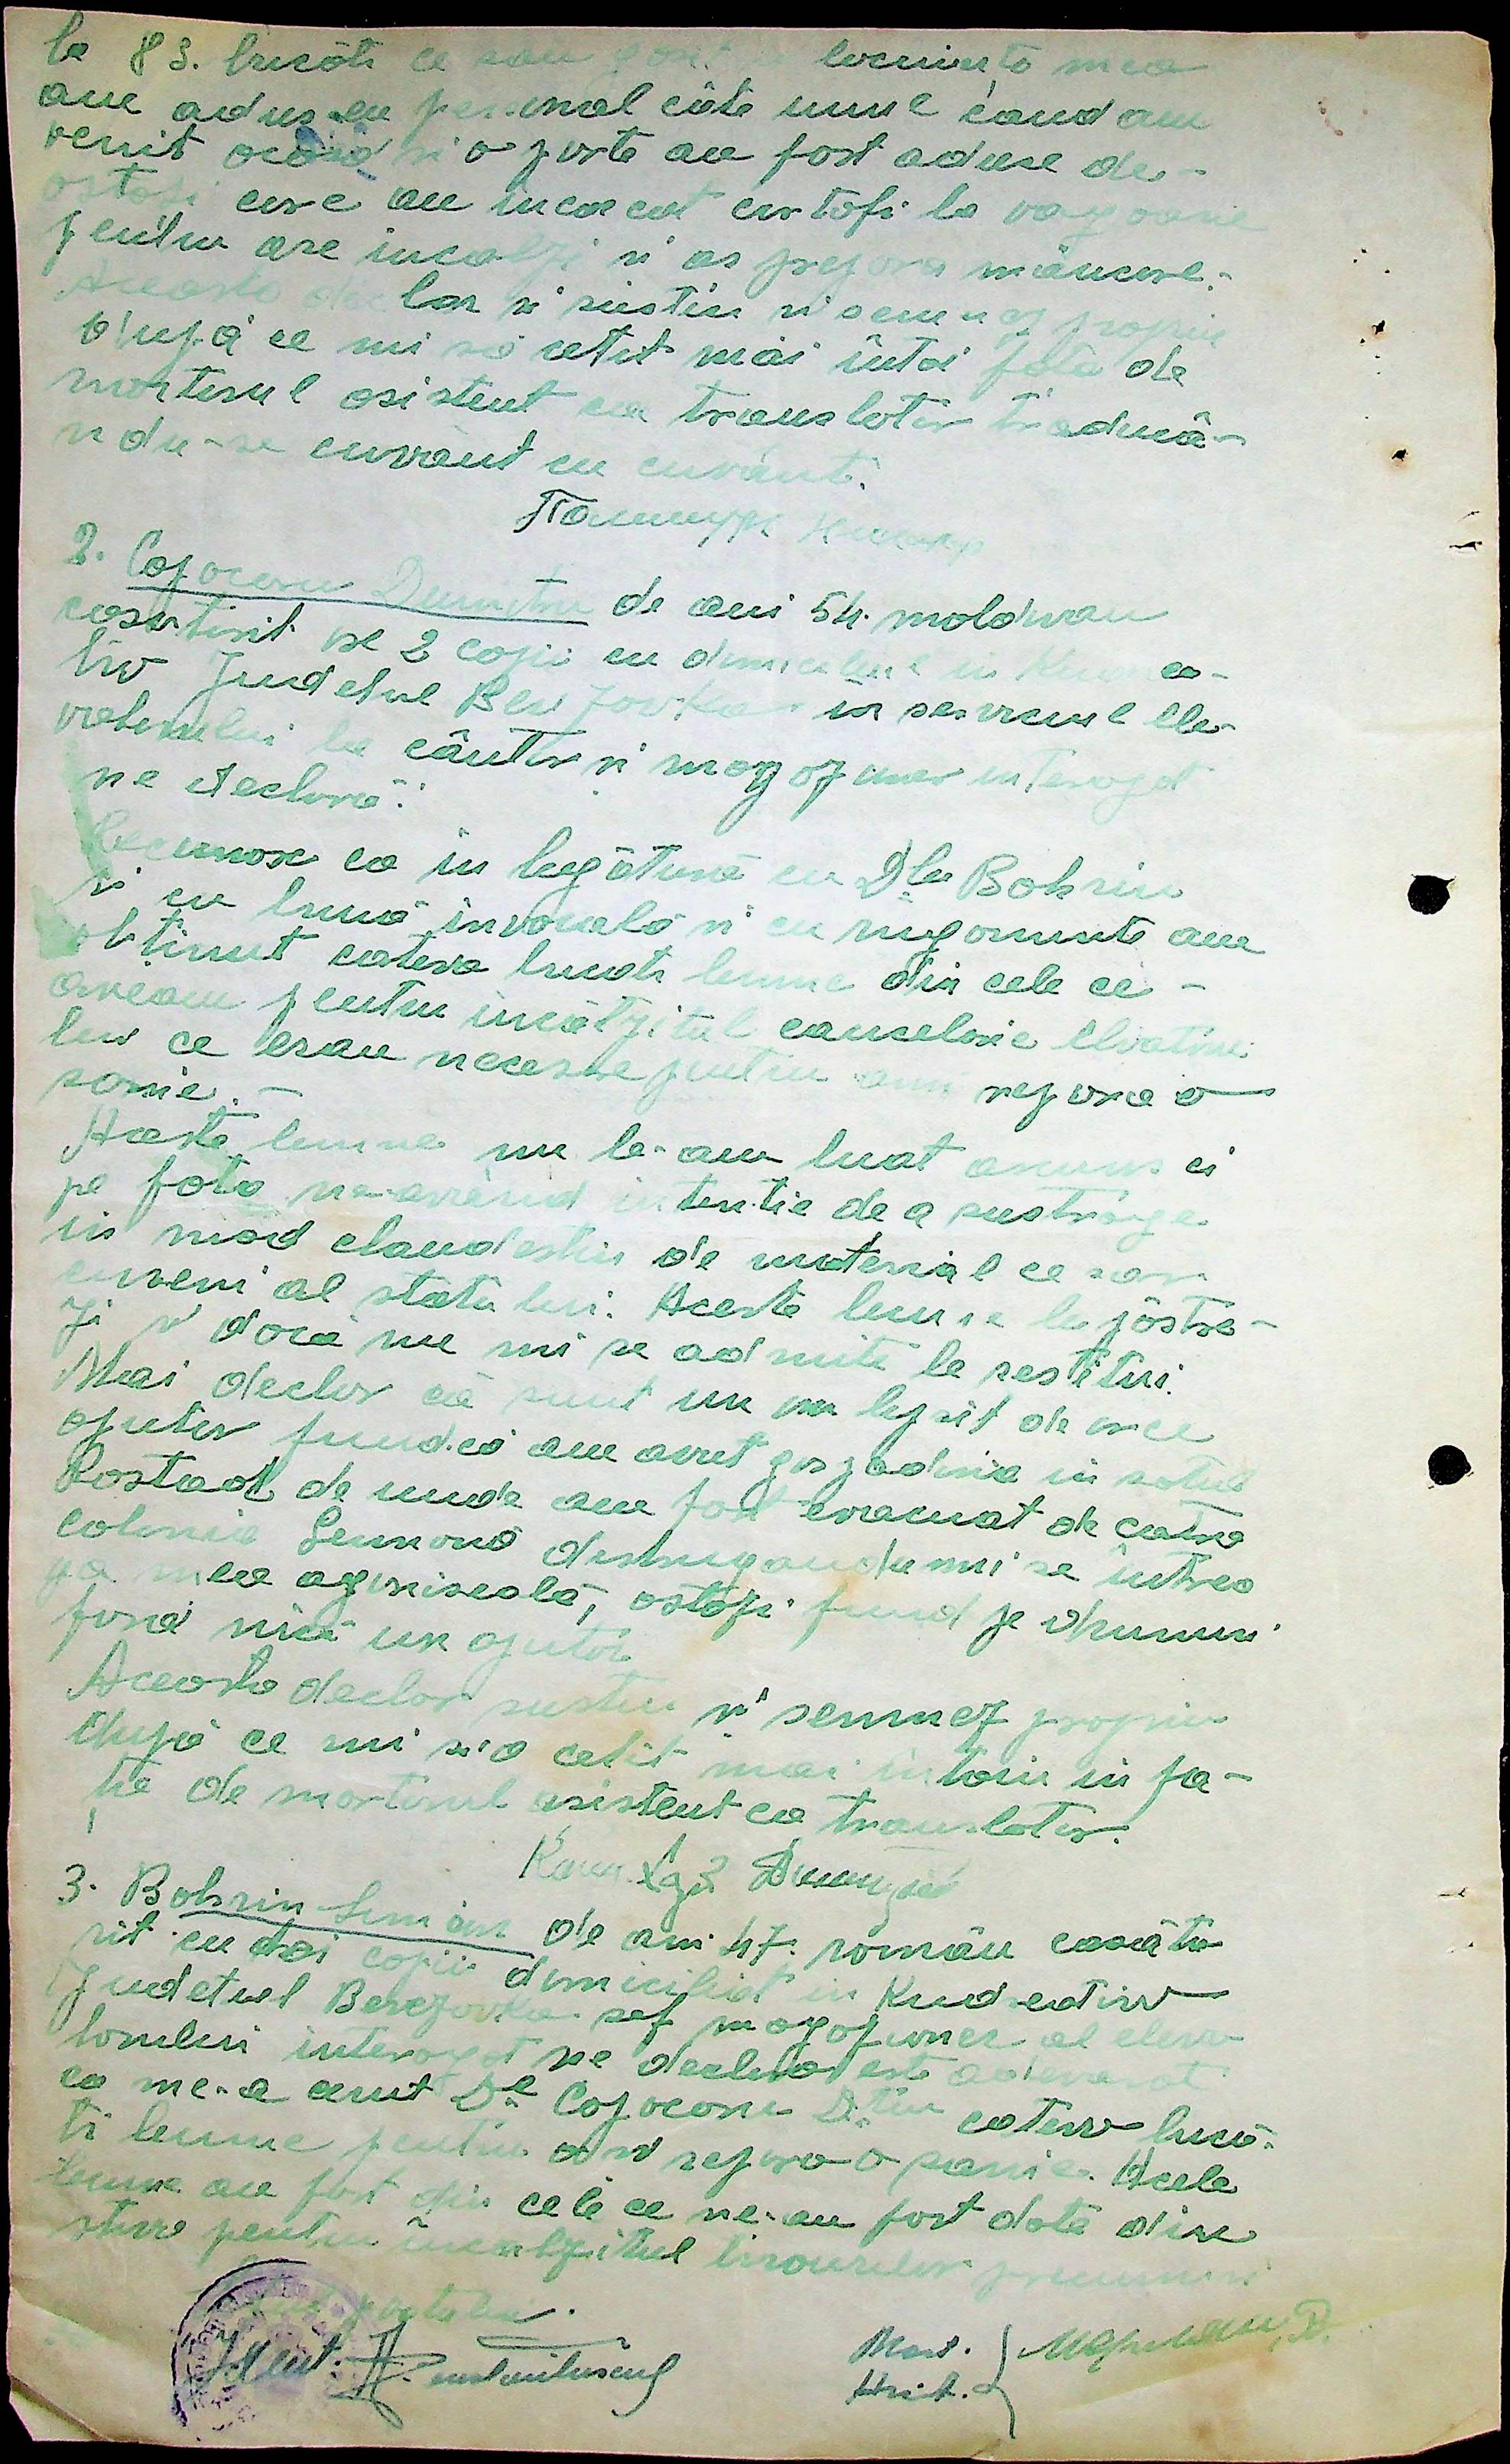 le 83. bucăti ce sau locuința mea
am adus eu personal câte unul cand am
venit acasă și o parte au fost aduse de-
ostași care au incarcat cartofi la vagoane
pentru ase incalzi și as prepara mâncare.-
Aceasta declar si sustin si semnez propriu
după ce mi sa cetit mai întăi fată de
martorul asistent ca translator traducâ-
ndu-se cuvânt cu cuvânt.
2. Cojocaru Dumitru de ani 54. moldovan
casatorit 2 copii cu domiciliul in
tiv Judetul Berezovka in serviciul Ele-
vatorului la cântar si magazioner interogat
ne declară:
Recunosc ca in legătură cu Dl. Bohsin
si cu bună invoială si cu rugominte am
obtinut cateva bucati lemne din cele ce -
aveam pentru incălzitul cancelarie Elvatoru
lui ce erau necesare pentru ami repara o
sanie. -
Aceste lemne nu le-am luat ascuns ci
pe fata ne-avănd intentie de a sustrage
in mod clandestin de material ce sar
cuveni al statului. Aceste lemne le păstre-
zi si dacă nu mi se admite le restitui.
Mai declar că sunt un om lipsit de orce
ajutor fiindcă am avut gospodaria in satul
Rostadt de unde am fost evacuat de catre
colonia Germană distrugandumi-se intrea
ga mea agoniseală, astăzi fiind pe drumuri
fără nici un ajutor
Aceasta declar sustin si semnez propriu
după ce mi s'a cetit mai intaiu in fa-
ța de martorul asistent ca translator.
3. Bohsin Simion de ani 47. român casăto
rit cu doi copii domiciliat in Kudreatiw
Judetul Berezovka sef magazioner al eleva
torului interogat ne declara este adevarat
ca me-a cerut Dl. Cojocaru D.tru cateva bucă-
ti lemne pentru asi repara o sanie. Acele
lemne au fost din cele ce ne-au fost date din
pentru încalzitul birourilor precum si
Mart.
Asist.